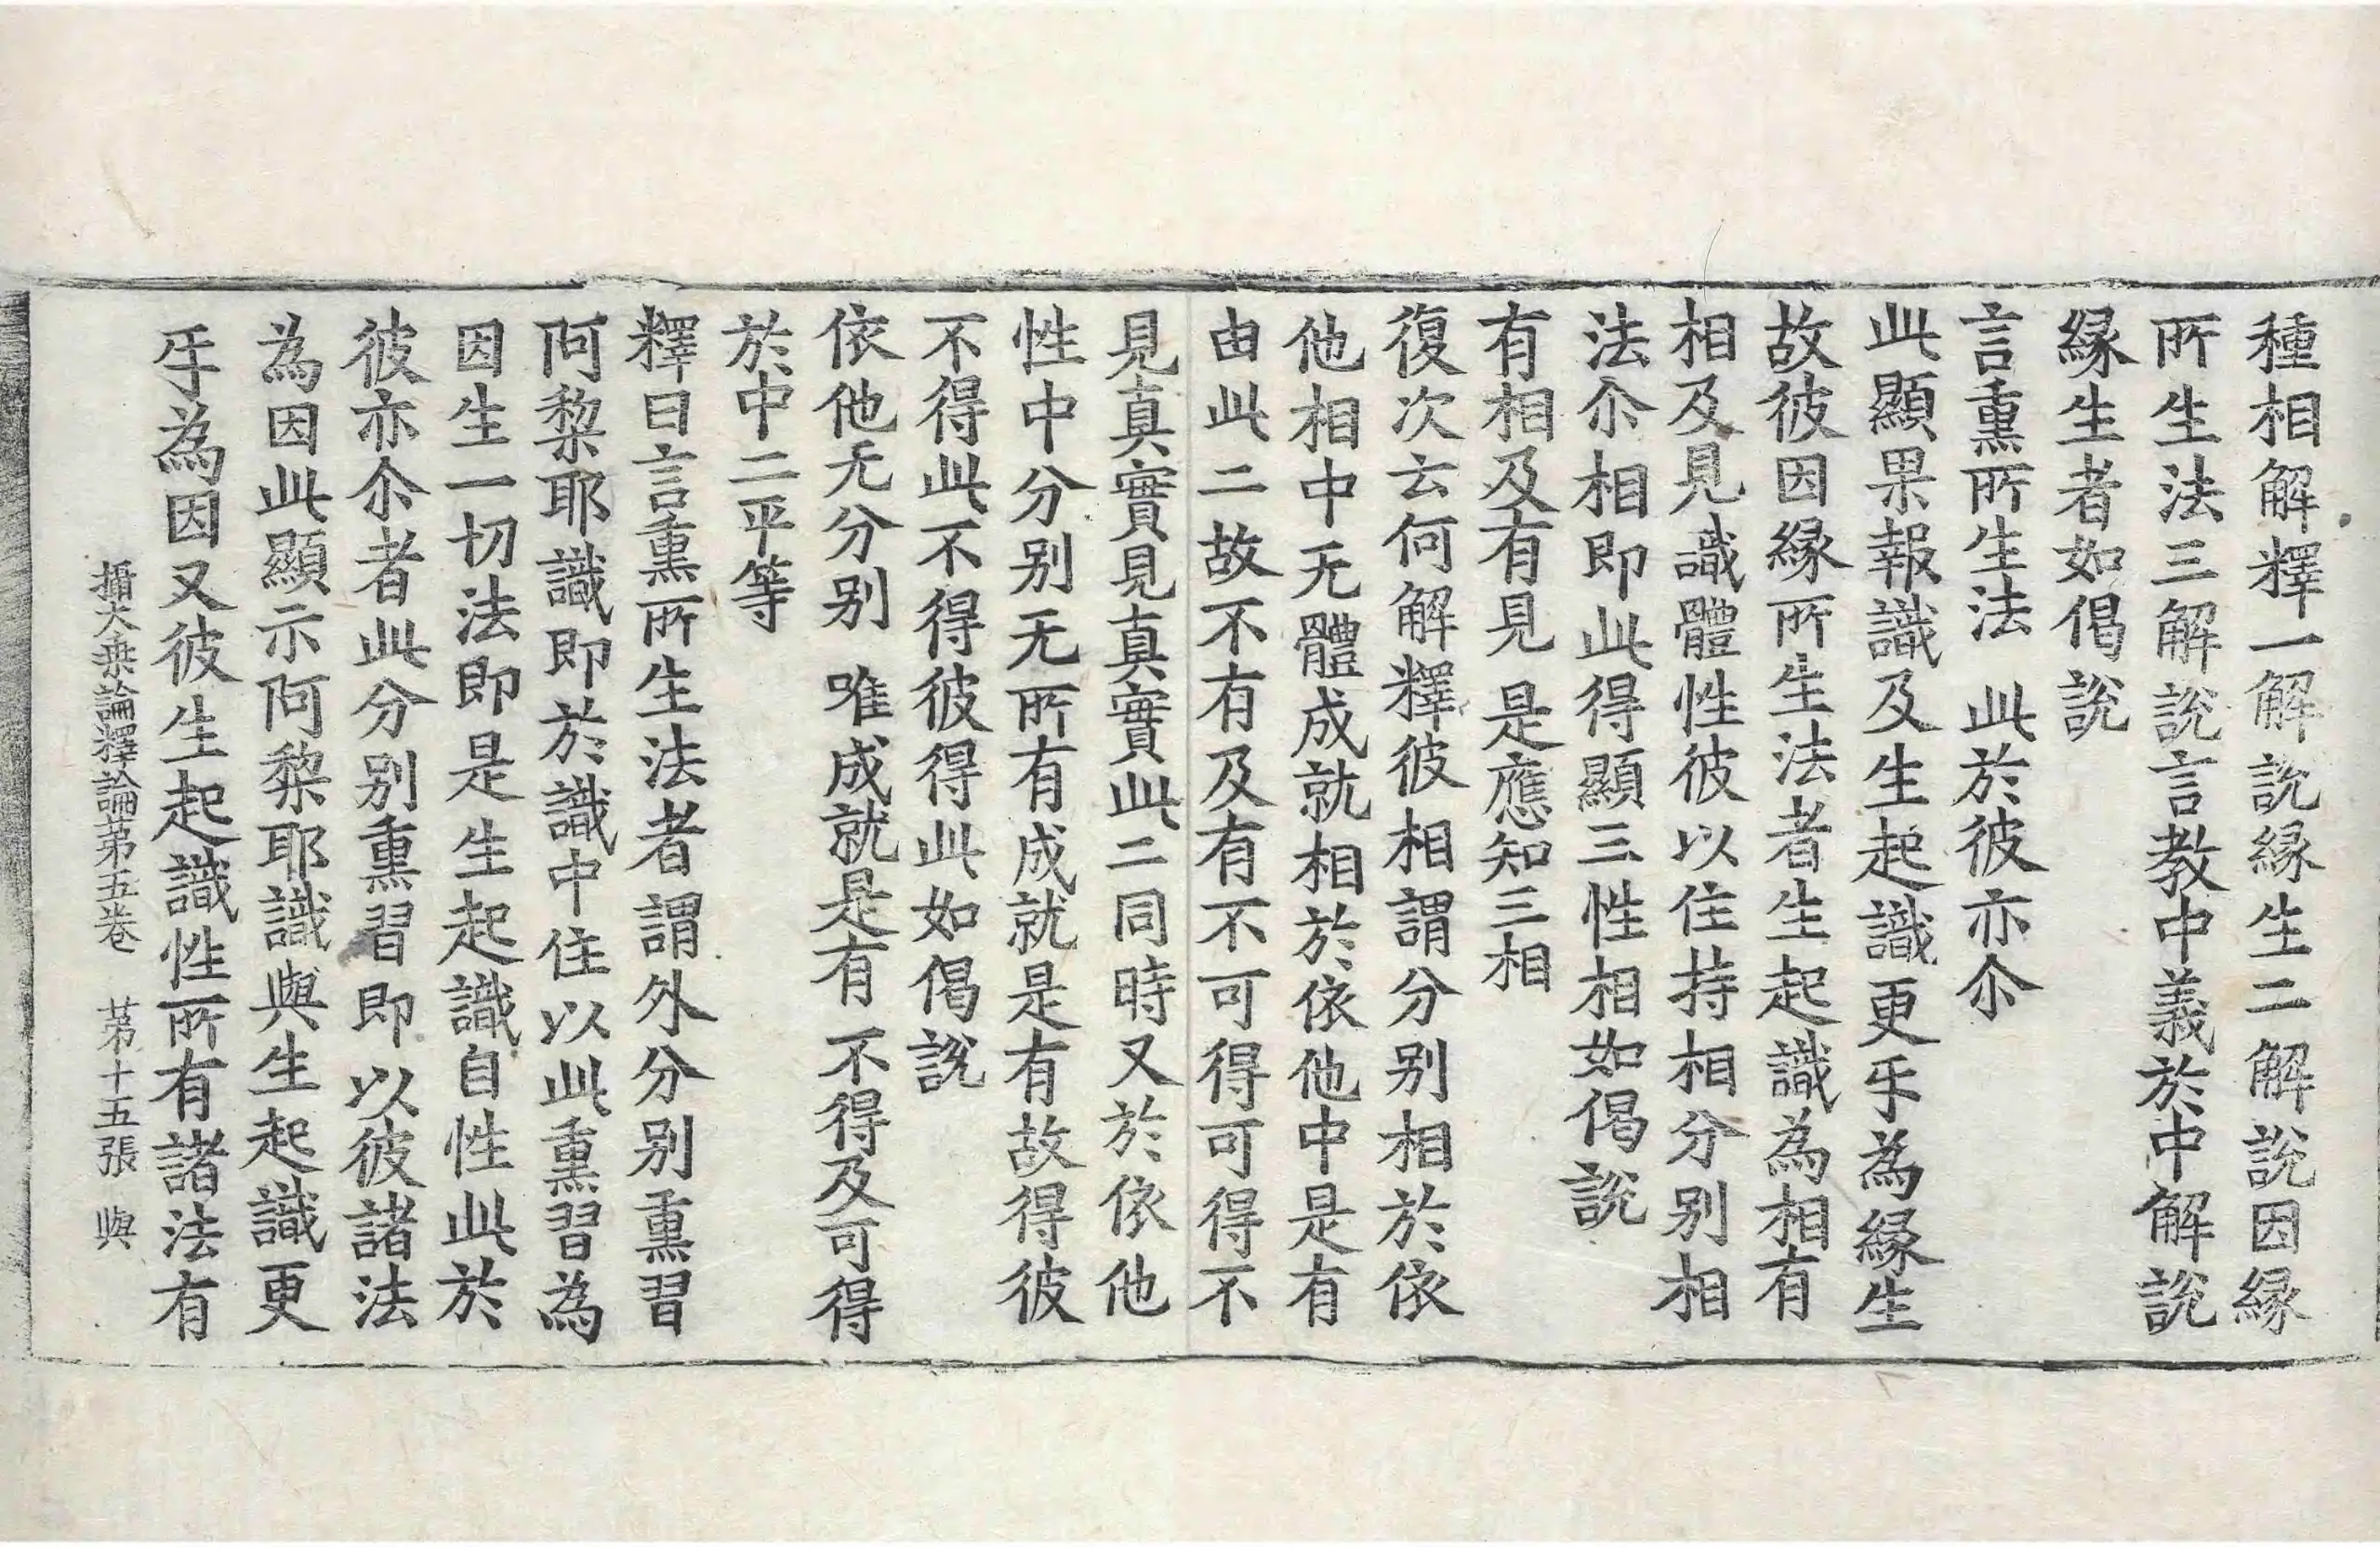 種相解釋一解說緣生二解說因緣
所生法三解說言教中義於中解說
緣生者如偈說
言熏所生法　此於彼亦尒
此顯果報識及生起識更㸦為緣生
故彼因緣所生法者生起識為相有
相及見識體性彼以住持相分別相
法尒相即此得顯三性相如偈說
有相及有見　是應知三相
復次云何解釋彼相謂分別相於依
他相中无體成就相於依他中是有
由此二故不有及有不可得可得不
見真實見真實此二同時又於依他
性中分別无所有成就是有故得彼
不得此不得彼得此如偈說
依他无分別　唯成就是有　不得及可得
於中二平等
釋曰言熏所生法者謂外分別熏習
阿黎耶識即於識中住以此熏習為
因生一切法即是生起識自性此於
彼亦尒者此分別熏習即以彼諸法
為因此顯示阿黎耶識與生起識更
㸦為因又彼生起識性所有諸法有
攝大乘論釋論第五卷　第十五張　與